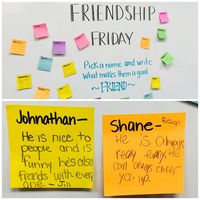 FRIENDSHIP
FRIDAY
Pick a name and write
What makes them a good
~FRIEND~
Johnathan-
He is nice to
people and is
funny he's also
friends with every
one. - Jill
Shane-
He is always
really funny. He
can always cheer
you up.